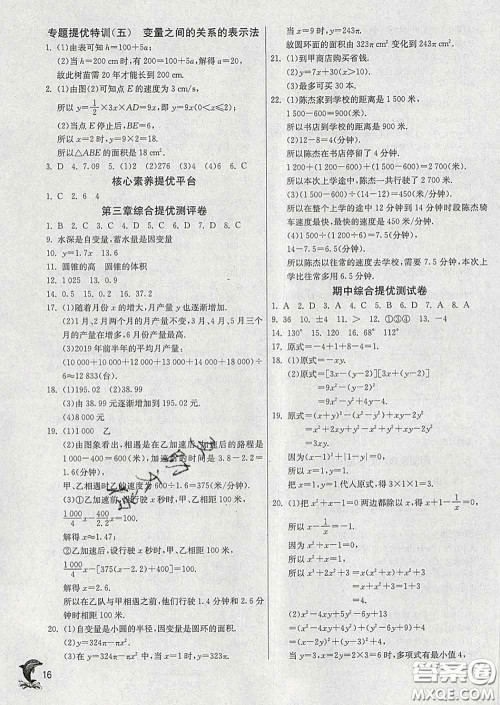 专题提优特训(五)　变量之间的关系的表示法
1. (1)由表可知 h=100+5a;
(2)当 h=200 cm 时,有 200=100+5a,解得 a=20,
故此树苗需 20 年才能长到 200 cm.
2. (1)由图(2)可知点 E 的速度为 3 cm/s,
所以 y=1/2×3x×AD=9x,即 y=9x(0<x≤2);
(2)当点 E 停止后,BE=6 cm,
所以 x=2 时,y=9×2=18.
所以△ABE 的面积是 18 cm².
3. D　4. 7.09　5. D　6. (2)276　(3)4　(4)6　7. C
核心素养提优平台
1. C　2. 6　4
第三章综合提优测评卷
1. B　2. D　3. C　4. B　5. C　6. B　7. C　8. B
9. 水深是自变量,蓄水量是因变量
10. y=1.7x　13.6
11. 圆锥的高　圆锥的体积
14. 0.5　15. 0.2　16. ①②④
17. (1)随着月份 x 的增大,月产量 y 也逐渐增加.
(2)1 月、2 月两个月的月产量不变,3 月、4 月、5 月三个
月的产量在增多,6 月份产量最高.
(3)2019 年前半年的平均月产量:
(10 000+10 000+12 000+13 000+14 000+18 000)
÷6≈12 833(台).
18. (1)195.02　(2)38.99
(3)由 38.99 元逐渐增加到 195.02 元.
(4)8000 元
19. (1)1 000　乙
(2)由图象看出,相遇是在乙加速后,加速后的路程是
1 000-400=600(米),加速后用的时间是 3.8-2.2=
1.6(分钟),
甲、乙相遇时乙的速度为 600÷1.6=375(米/分钟).
(3)①乙加速前,设行驶 x 秒时,甲、乙相距 100 米,
1000/4 x-400/2.2 x=100,
解得 x≈1.47;
②乙加速后,设行驶 x 秒时,甲、乙相距 100 米,
1000/4 x-[375(x-2.2)+400]=100,
解得 x=2.6.
所以在乙队与甲相遇之前,他们行驶 1.47 分钟和 2.6 分
钟时相距 100 米.
20. (1)自变量是小圆的半径,因变量是圆环的面积.
(2)y=324π-πx²　(3)当 x=1 时,y=323π;
16
当 x=9 时,y=243π.
故圆环的面积由 323π cm² 变化到 243π cm².
21. (1)到甲商店购买省钱.
(2)y=7x+30(x>10).
(3)最多可买 30 本.
22. (1)陈杰家到学校的距离是 1 500 米,
1 500-600=900(米).
所以书店到学校的距离是 900 米.
(2)12-8=4(分钟).
所以陈杰在书店停留了 4 分钟.
1 200+(1 200-600)+(1 500-600)=2 700(米).
所以本次上学途中,陈杰一共行驶了 2 700 米.
(3)(1 500-600)÷(14-12)=450(米/分钟).
所以在整个上学的途中 12 分钟至 14 分钟时段陈杰骑
车速度最快,最快的速度是 450 米/分钟.
(4)1 500÷(1 200÷6)=7.5(分钟).
所以陈杰以往常的速度去学校,需要 7.5 分钟,本次上学
比往常多用 6.5 分钟.
期中综合提优测试卷
1. A　2. D　3. A　4. D　5. C　6. D　7. C　8. C
9. 36　10. ±4　11. >　12. ①③④　13. -4
14. 130°　15. 120°　16. 56°
17. 原式=4-1+1-3=1.
18. (1)原式=-xy.
(2)原式=[3x-(y-2)][3x+(y-2)]
=(3x)²-(y-2)²
=9x²-y²+4y-4.
19. 原式=(x+y)³-(x²-y²)(x+y)-xy-2y²
=x²+2xy+y²-x²+y²+xy-2y²
=3xy.
因为(x-1)²+|1-y|=0,
所以 x=1,y=1.
将 x=1,y=1 代入原式,得 3×1×1=3.
20. (1)把 x²+x-1=0 两边都除以 x,得 x+1-1/x=0.
所以 x-1/x=-1.
(2)x²-4xy+5y²-2y+5
=(x²-4xy+4y²)+(y²-2y+1)+4
=(x-2y)²+(y-1)²+4,